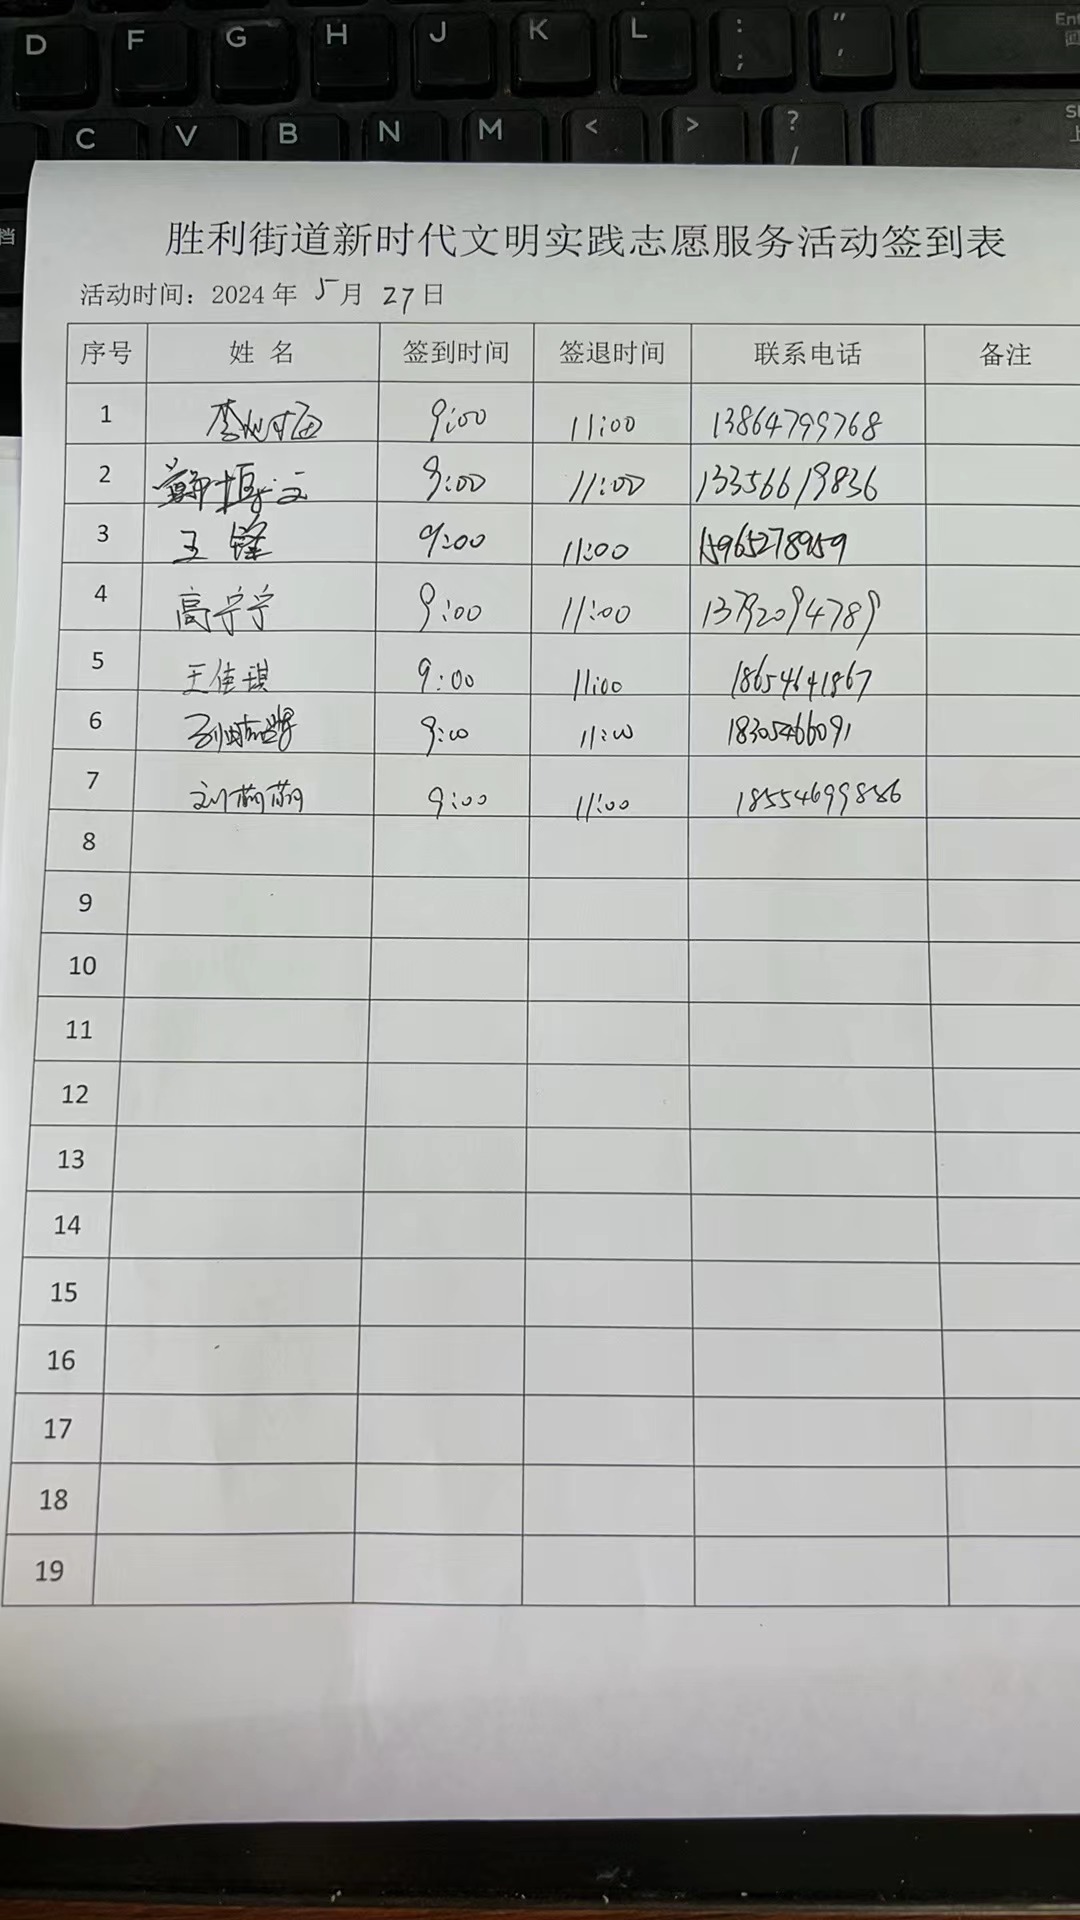 D F G H J K L : ; " ' Ent
C V B N M < > ? /
档
胜利街道新时代文明实践志愿服务活动签到表
活动时间：2024年 5月 27日
序号 姓 名 签到时间 签退时间 联系电话 备注
1 9:00 11:00 13864799768
2 9:00 11:00 13356619836
3 王锋 9:00 11:00 15965278959
4 高宁宁 9:00 11:00 13792094789
5 王佳琪 9:00 11:00 18654641867
6 9:00 11:00 18305466091
7 刘萌萌 9:00 11:00 18554699886
8
9
10
11
12
13
14
15
16
17
18
19